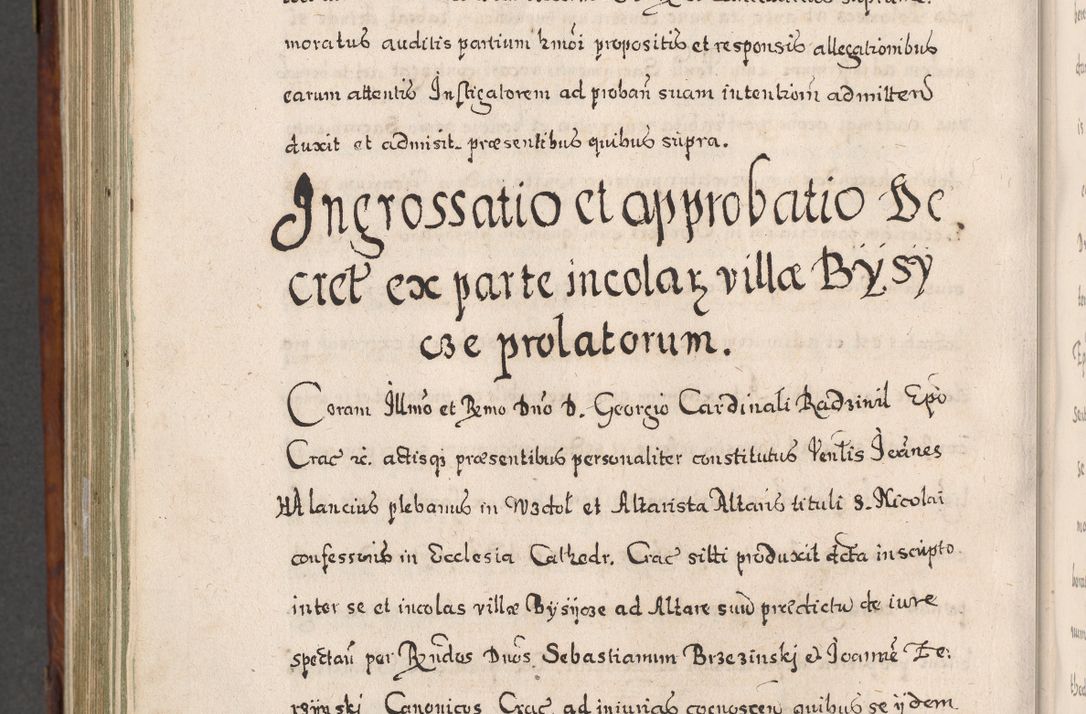 moratus auditis partium hmoi propositis et responsis allegationibus
earum attentis Instigatorem ad proban̄ suam intentiom̄ admittend
duxit et admisit. præsentibus quibus supra.
Ingrossatio et approbatio De
cret ex parte incolaꝝ villæ Bÿsÿ
cze prolatorum.
Coram Illmo et Rmo Dno D. Georgio Cardinali Radzivil Epo
Crac ꝛc. actisqȝ præsentibus personaliter constitutus Venlis Joannes
HAlancius plebanus in Wzdol et Altarista Altaris tituli S. Nicolai
confessoris in Ecclesia Cathedr. Crac sitti produxit dcta inscripto
inter se et incolas villæ Bÿsÿcze ad Altare suū predictū de iure
spectan̄ per Rndos Dnos Sebastianum Brzezinskj et Joannē Fe:
rgÿnskj Canonicos Crac ad iniurias cognoscen̄ quibus se ÿdem